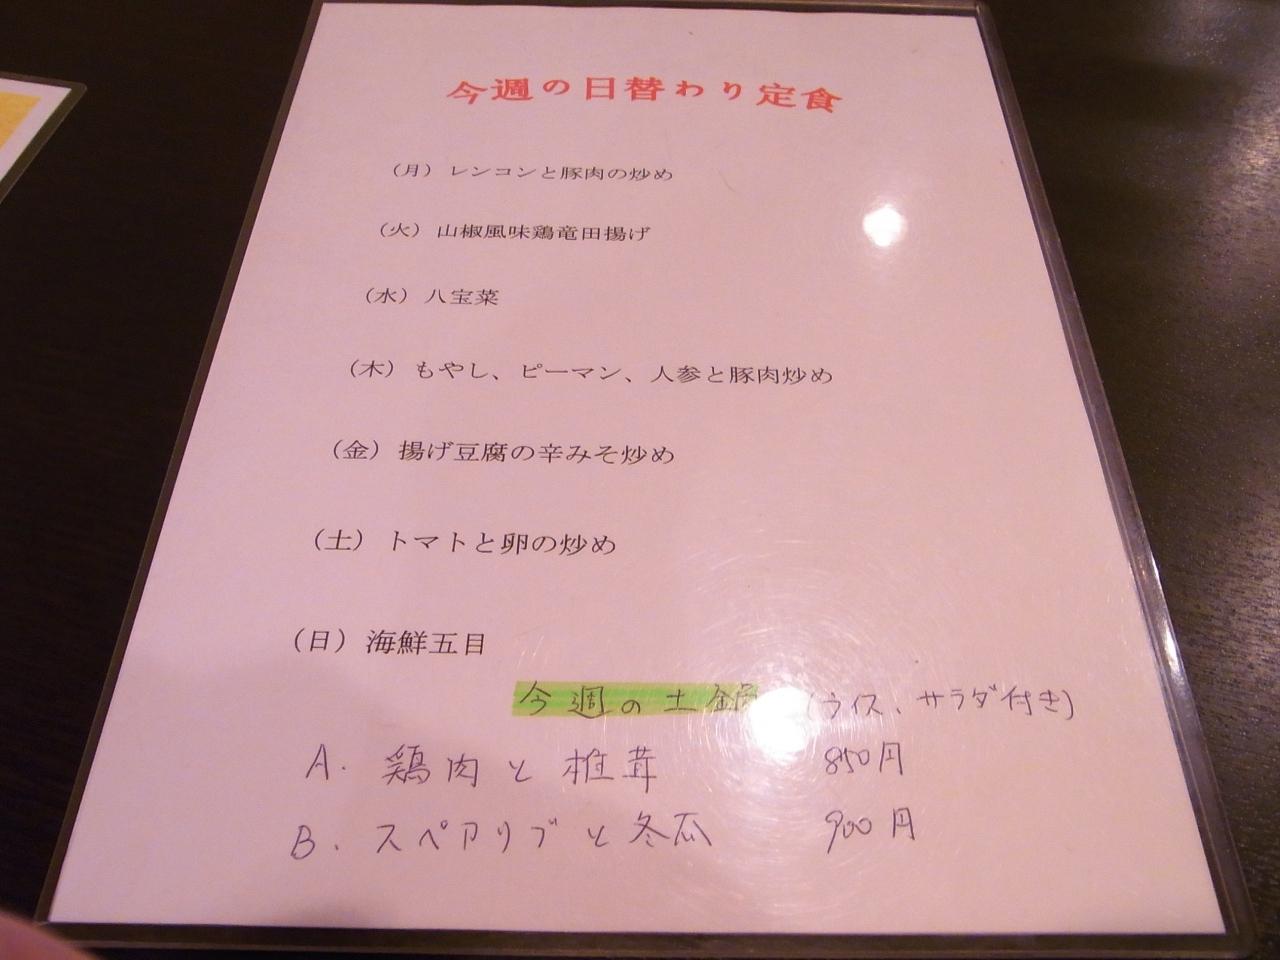 今週の日替わり定食
（月）レンコンと豚肉の炒め
（火）山椒風味鶏竜田揚げ
（水）八宝菜
（木）もやし、ピーマン、人参と豚肉炒め
（金）揚げ豆腐の辛みそ炒め
（土）トマトと卵の炒め
（日）海鮮五目
今週の土鍋 (ライス、サラダ付き)
A. 鶏肉と椎茸 850円
B. スペアリブと冬瓜 900円